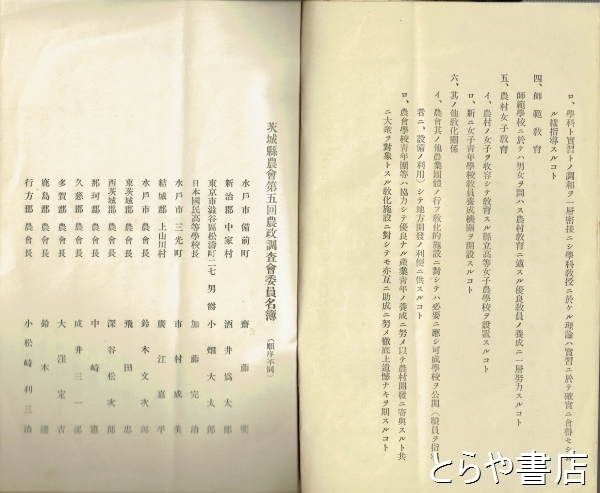 ロ、學科ト實習トノ調和ヲ一層密接ニシ學科教授ニ於ケル理論ハ實習ニ於テ確實ニ會得セシム
ル樣指導スルコト
四、師範教育
師範學校ニ於テハ男女ヲ問ハス農村教育ニ適スル優良教員ノ養成ニ一層努力スルコト
五、農村女子教育
イ、農村ノ女子ヲ收容シテ教育スル縣立高等女子農學校ヲ設置スルコト
ロ、新ニ女子青年學校教員養成機關ヲ開設スルコト
六、其ノ他教化關係
イ、農會其ノ他農業團體ノ行フ教化的施設ニ對シテハ必要ニ應シ可成學校ヲ公開(職員ヲ指導
者ニ、設備ノ利用)シテ地方開發ノ利便ニ供スルコト
ロ、農會學校青年團等ハ協力シテ優良ナル產業青年ノ養成ニ努メ以テ農村開發ニ寄與スルト共
ニ大衆ヲ對象トスル教化施設ニ對シテモ亦互ニ助成ニ努メ徹底上遺憾ナキヲ期スルコト
茨城縣農會第五回農政調査會委員名簿(順序不同)
水戶市備前町 齋藤
新治郡中家村 酒井爲太郎
東京市澁谷區松濤町二七 男爵 小畑大太郎
日本國民高等學校長 加藤完治
水戶市三光町 市村成美
結城郡上山川村 廣江嘉平
水戶市農會長 鈴木文次郎
東茨城郡農會長 飛田忠
西茨城郡農會長 深谷松次郎
那珂郡農會長 中崎憲
久慈郡農會長 成井三一郎
多賀郡農會長 大窪定吉
鹿島郡農會長 鈴木達
行方郡農會長 小松崎利三治
とらや書店